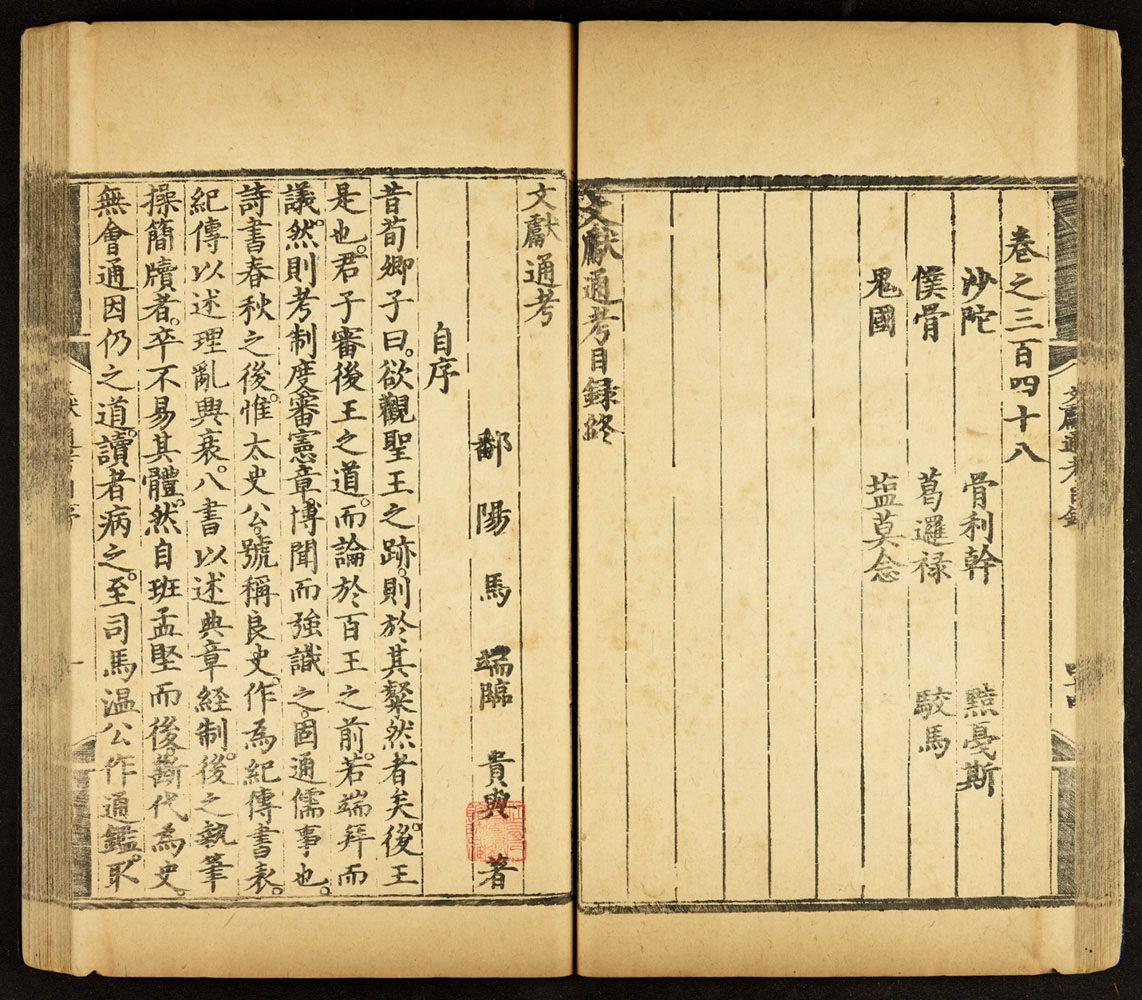 卷之三百四十八
沙陀 骨利幹 黠戞斯
僕骨 葛邏禄 駮馬
鬼國 塩莫念
文獻通考目録終
文獻通考目録
文獻通考
鄱陽馬端臨貴與著
自序
昔荀卿子曰。欲觀聖王之跡。則於其粲然者矣。後王
是也。君子審後王之道。而論於百王之前。若端拜而
議。然則考制度審憲章。博聞而強識之。固通儒事也。
詩書春秋之後。惟太史公。號稱良史。作為紀傳書表。
紀傳以述理亂興衰。八書以述典章經制。後之執筆
操簡牘者。卒不易其體。然自班孟堅而後。斷代為史。
無會通因仍之道。讀者病之。至司馬温公作通鑑。取